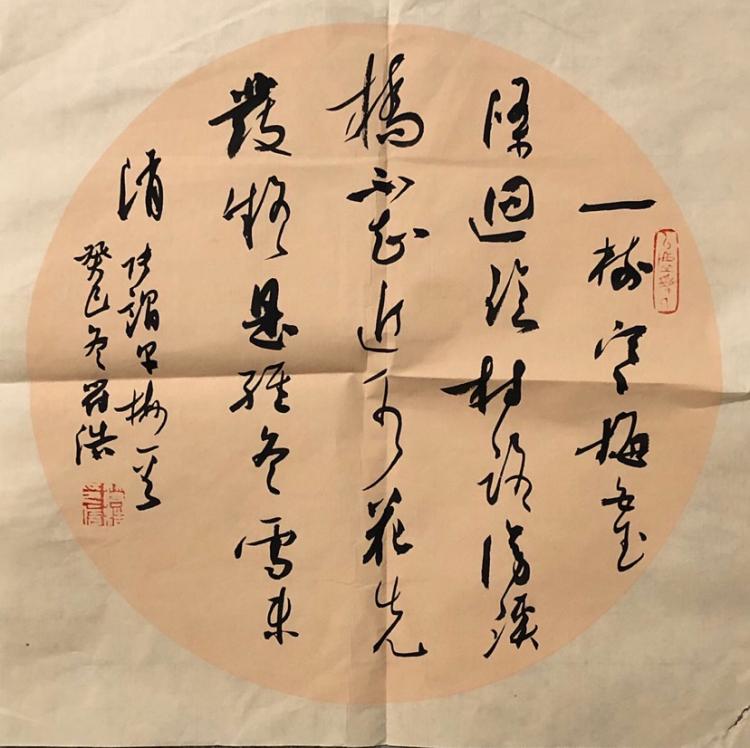 一树寒梅白玉
條迴临村路傍溪
橋不知近水花先
發疑是經冬雪未
消
张謂早梅一首
癸巳冬浩